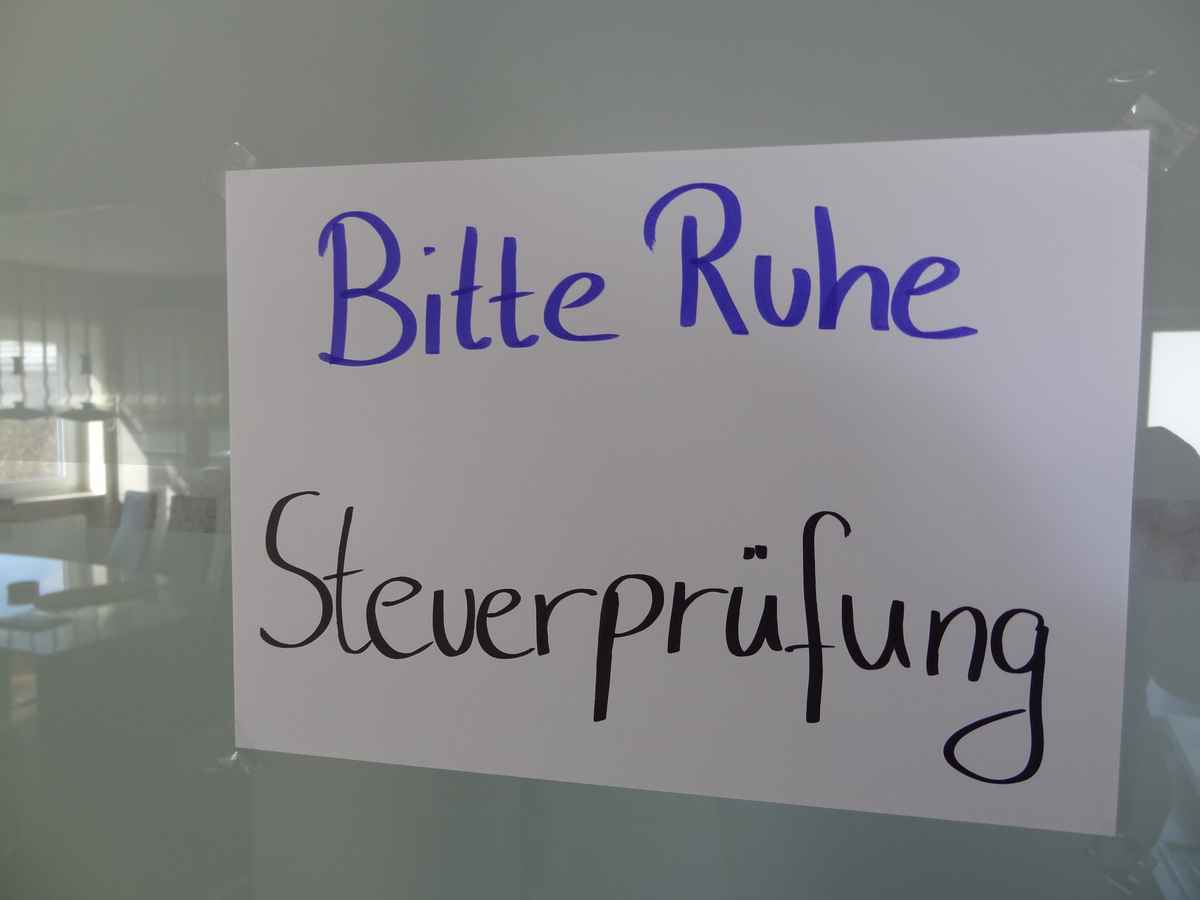 Bitte Ruhe
Steuerprüfung